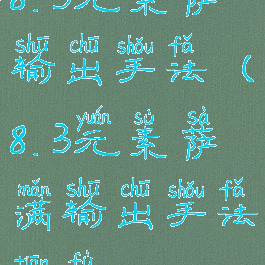 8.3元素萨
shū chū shǒu fǎ
输出手法（
yuán sù sà
8.3元素萨
mǎn shū chū shǒu fǎ
满输出手法
tiān fù